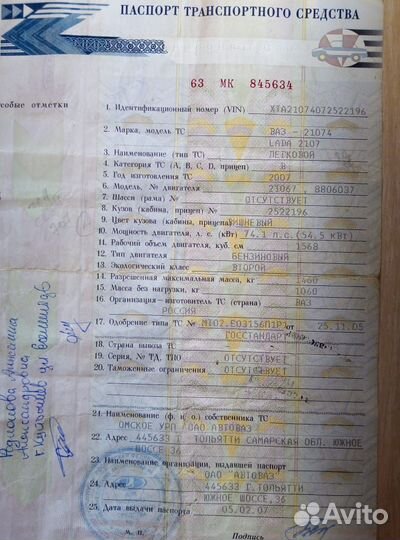 ПАСПОРТ ТРАНСПОРТНОГО СРЕДСТВА
63 МК 845634
особые отметки
1. Идентификационный номер (VIN) XTA21074072522196
2. Марка, модель ТС ВАЗ - 21074
LADA 2107
3. Наименование (тип ТС) ЛЕГКОВОЙ
4. Категория ТС (А, В, С, D, прицеп) В
5. Год изготовления ТС 2007
6. Модель, № двигателя 21067, 8806037
7. Шасси (рама) № ОТСУТСТВУЕТ
8. Кузов (кабина, прицеп) № 2522196
9. Цвет кузова (кабины, прицепа) ВИШНЕВЫЙ
10. Мощность двигателя, л. с. (кВт) 74.1 л.с.(54.5 кВт)
11. Рабочий объем двигателя, куб. см 1568
12. Тип двигателя БЕНЗИНОВЫЙ
13. Экологический класс ВТОРОЙ
14. Разрешенная максимальная масса, кг 1460
15. Масса без нагрузки, кг 1060
16. Организация-изготовитель ТС (страна) ВАЗ
РОССИЯ
17. Одобрение типа ТС № от 25.11.05
ГОССТАНДАРТ
18. Страна вывоза ТС
19. Серия, № ТД, ТПО ОТСУТСТВУЕТ
20. Таможенные ограничения ОТСУТСТВУЕТ
21. Наименование (ф. и. о.) собственника ТС
ОМСКОЕ УРП ОАО АВТОВАЗ
22. Адрес 445633 ТОЛЬЯТТИ САМАРСКАЯ ОБЛ. ЮЖНОЕ
ШОССЕ 36
23. Наименование организации, выдавшей паспорт
ОАО АВТОВАЗ
24. Адрес 445633 Г.ТОЛЬЯТТИ
ЮЖНОЕ ШОССЕ,36
25. Дата выдачи паспорта 05.02.07
М. П. Подпись
Avito